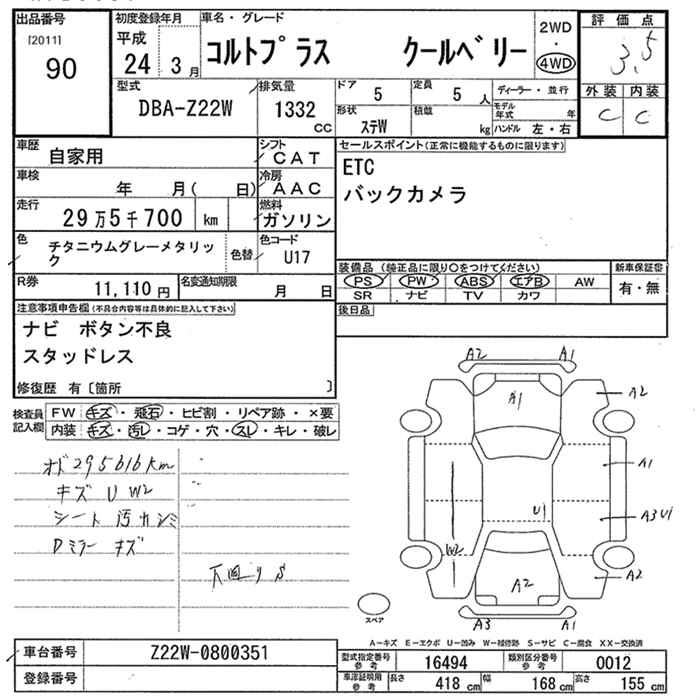 出品番号
[2011]
90
初度登録年月
平成
24 3月
車名・グレード
コルトプラス クールベリー
2WD
・
4WD
評価点
3.5
外装 内装
C C
型式
DBA-Z22W
排気量
1332 cc
ドア 5
定員 5 人
ディーラー・並行
モデル年式 年
形状 ステW
積載 kg
ハンドル 左・右
車歴 自家用
シフト CAT
車検 年 月( 日)
冷房 AAC
走行 29万5千700 km
燃料 ガソリン
色 チタニウムグレーメタリック
色替
色コード U17
R券 11,110円
名変通知期限 月 日
セールスポイント(正常に機能するものに限ります)
ETC
バックカメラ
装備品 (純正品に限り○をつけてください)
新車保証書
PS PW ABS エアB AW
有・無
SR ナビ TV カワ
後日品
注意事項申告欄(不具合内容等は具体的に記入して下さい)
ナビ ボタン不良
スタッドレス
修復歴 有〔箇所 〕
検査員記入欄
FW キズ・飛石・ヒビ割・リペア跡・×要
内装 キズ・汚レ・コゲ・穴・スレ・キレ・破レ
オド295616km
キズ U W2
シート 汚れ シミ
Dミラー キズ
下回り S
A2 A1
A1
A2
A1
U1
A3 U1
W2
A2
A2
A3 A1
スペア
A-キズ E-エクボ U-凹み W-補修跡 S-サビ C-腐食 XX-交換済
車台番号 Z22W-0800351
登録番号
型式指定番号参考 16494
類別区分番号参考 0012
車庫証明用参考 長さ 418 cm 幅 168 cm 高さ 155 cm